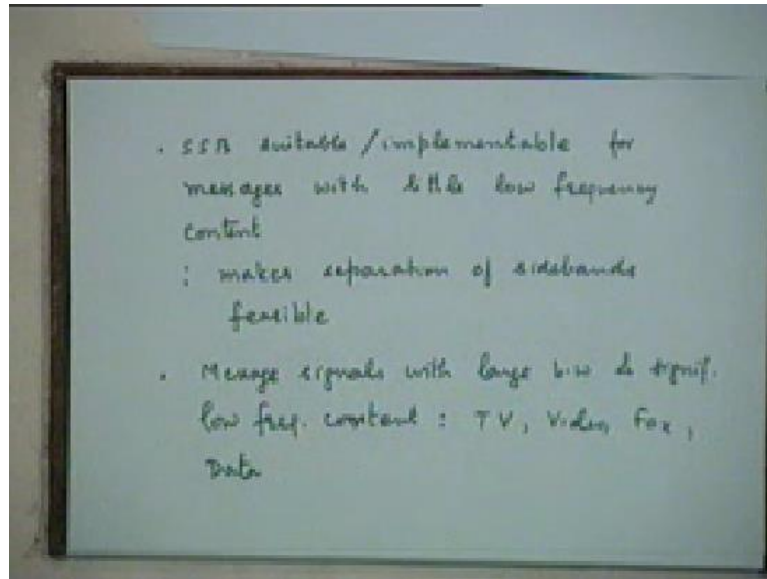 . SSB suitable / implementable for
messages with little low frequency
content
: makes separation of sidebands
feasible
. Message signals with large b.w & signif.
low freq. content : TV, Video, Fax,
Data